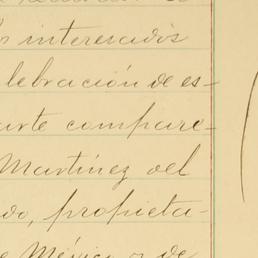 s interesados
lebración de es-
arte compare-
Martínez del
do, propieta-
e México y de